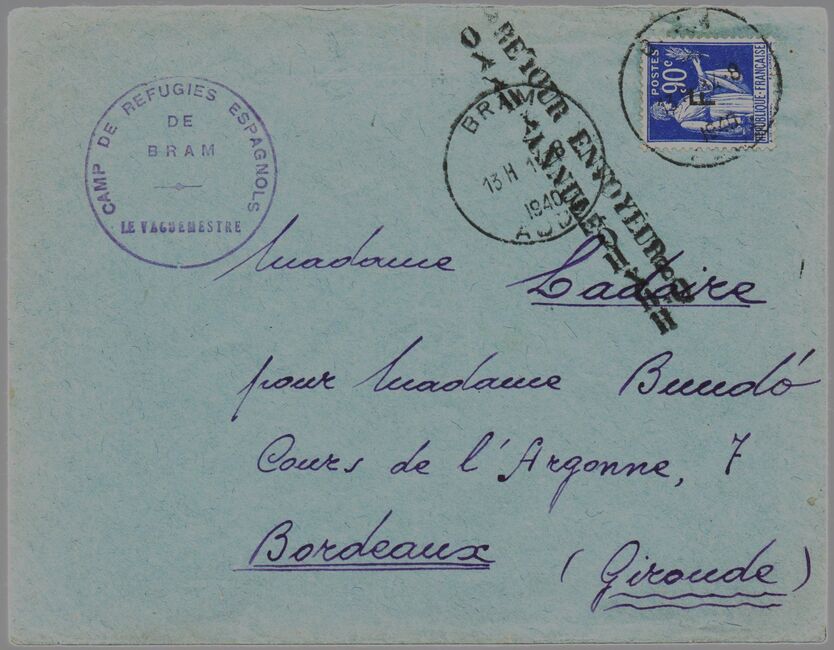 CAMP DE REFUGIES ESPAGNOLS
DE
BRAM
LE VAGUEMESTRE
RETOUR ENVOYEUR
ANNULÉ
BRAM
13 H
1940
AUDE
POSTES
90c
F
REPUBLIQUE FRANÇAISE
1940
Madame Ladaire
pour Madame Bundó
Cours de l'Argonne, 7
Bordeaux (Gironde)